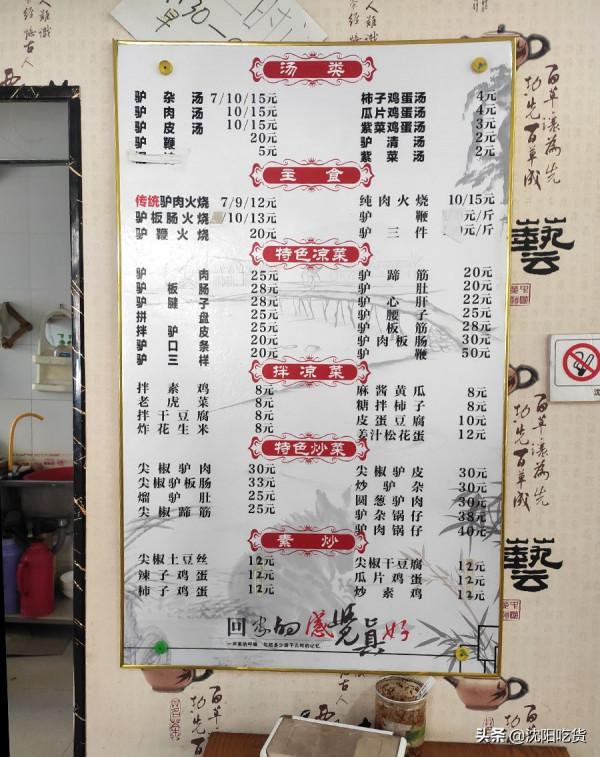 汤类
驴杂汤 7/10/15元
驴肉汤 10/15元
驴皮汤 10/15元
驴鞭 20元
5元
柿子鸡蛋汤 4元
瓜片鸡蛋汤 4元
紫菜鸡蛋汤 3元
驴清汤 2元
紫菜汤 2元
主食
传统驴肉火烧 7/9/12元
驴板肠火烧 /10/13元
驴鞭火烧 20元
纯肉火烧 10/15元
驴鞭 元/斤
驴三件 元/斤
特色凉菜
驴肉 25元
驴板肠 28元
驴腱子 28元
拼盘 25元
拌驴皮 25元
驴口条 20元
驴三样 20元
驴蹄筋 20元
驴肚 20元
驴心肝 22元
驴腰子 25元
驴板筋 28元
驴肉板肠 30元
驴鞭 50元
拌凉菜
拌素鸡 8元
老虎菜 8元
拌干豆腐 8元
炸花生米 8元
麻酱黄瓜 8元
糖拌柿子 8元
皮蛋豆腐 10元
姜汁松花蛋 12元
特色炒菜
尖椒驴肉 30元
尖椒驴板肠 33元
熘驴肚 25元
尖椒蹄筋 25元
尖椒驴皮 30元
炒驴 30元
圆葱驴肉 30元
驴杂锅仔 38元
驴肉锅仔 40元
素炒
尖椒土豆丝 12元
辣子鸡蛋 12元
柿子鸡蛋 12元
尖椒干豆腐 12元
瓜片鸡蛋 12元
炒素鸡 12元
回家的感觉真好
藝
藝
头条 @沈阳吃货